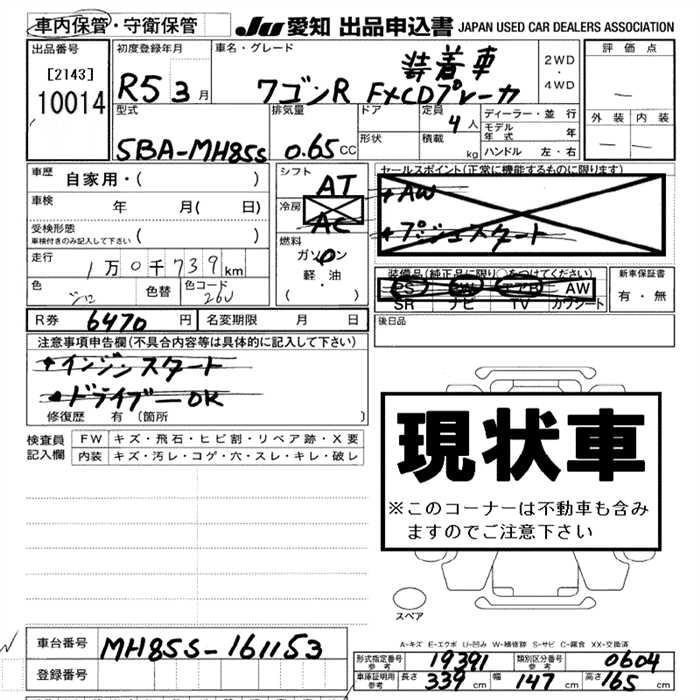 車内保管・守衛保管 JU 愛知 出品申込書 JAPAN USED CAR DEALERS ASSOCIATION
出品番号 初度登録年月 車名・グレード 評価点
[2143] 装着車 2WD・4WD
10014 R5 3月 ワゴンR FXCDプレーカ —
型式 排気量 ドア 定員 ディーラー・並行 外装 内装
4人 モデル年式 年
形状 積載 kg ハンドル 左・右 — —
5BA-MH85S 0.65CC
車歴 自家用・( ) シフト AT セールスポイント(正常に機能するものに限ります)
車検 年 月(日) 冷房 AC ・AW
受検形態 車検付きのみ記入して下さい ( ) ・プッシュスタート
走行 1万0千739km 燃料 ガソリン 軽・油 ( )
装備品(純正品に限り○をつけてください) 新車保証書
色 シロ 色替 色コード 26U PS PW エアB AW 有・無
SR ナビ TV カワシート
R券 6470円 名変期限 月 日 後日品
注意事項申告欄(不具合内容等は具体的に記入して下さい)
・インジンスタート
・ドライブーOK
修復歴 有〔箇所 〕
検査員記入欄 FW キズ・飛石・ヒビ割・リペア跡・X要
内装 キズ・汚レ・コゲ・穴・スレ・キレ・破レ
現状車
※このコーナーは不動車も含み
ますのでご注意下さい
スペア
A-キズ E-エクボ U-凹み W-補修跡 S-サビ C-腐食 XX-交換済
車台番号 MH85S-161153
登録番号
形式指定番号 参考 19391 類別区分番号 参考 0604
車庫証明用 参考 長さ 339cm 幅 147cm 高さ 165cm